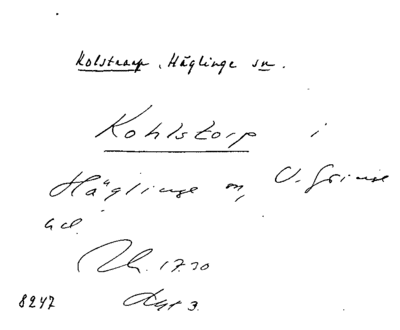 Kolstorp, Häglinge sn.
Kohlstorp i
Häglinge sn, V. Göinge
hd.
1730
8247